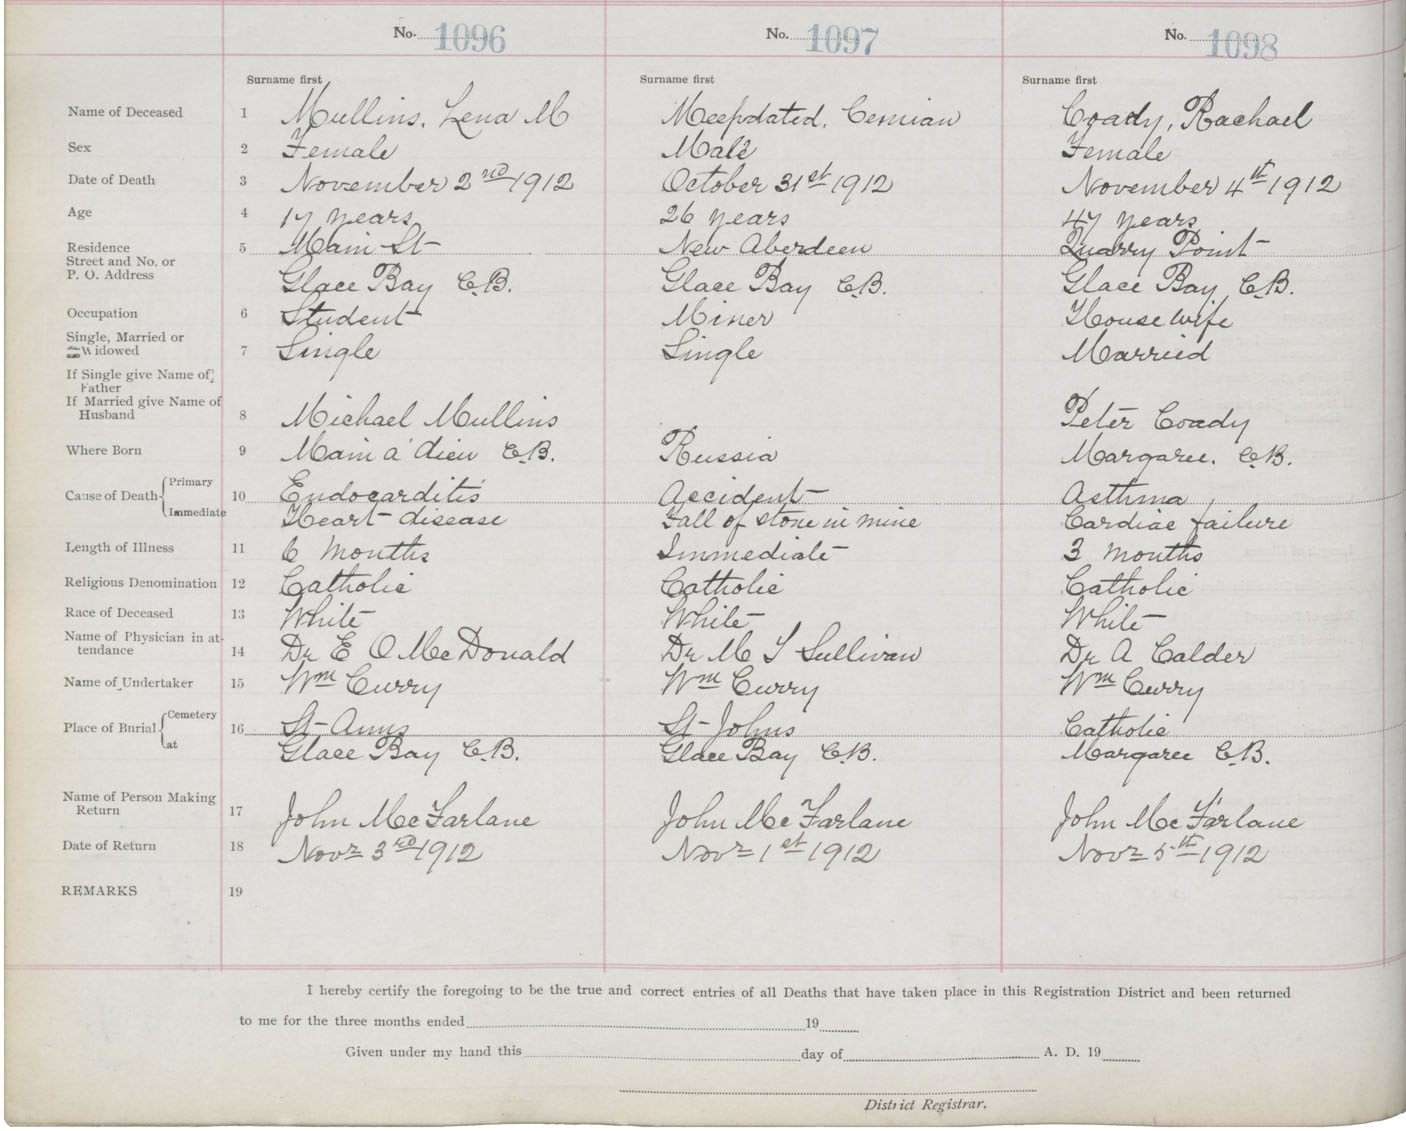 No. 1096 No. 1097 No. 1098
Surname first Surname first Surname first
Name of Deceased 1 Mullins, Lena M Meepdated, Cemian Coady, Rachael
Sex 2 Female Male Female
Date of Death 3 November 2nd 1912 October 31st 1912 November 4th 1912
Age 4 17 years 26 years 47 years
Residence 5 Main St New Aberdeen Quarry Point
Street and No. or
P. O. Address Glace Bay C.B. Glace Bay C.B. Glace Bay C.B.
Occupation 6 Student Miner House wife
Single, Married or
Widowed 7 Single Single Married
If Single give Name of
Father
If Married give Name of
Husband 8 Michael Mullins Peter Coady
Where Born 9 Main a' dieu C.B. Russia Margaree. C.B.
Cause of Death Primary 10 Endocarditis Accident Asthma
Immediate Heart disease Fall of stone in mine Cardiac failure
Length of Illness 11 6 months Immediate 3 months
Religious Denomination 12 Catholic Catholic Catholic
Race of Deceased 13 White White White
Name of Physician in at-
tendance 14 Dr E O McDonald Dr M T Sullivan Dr A Calder
Name of Undertaker 15 Wm Curry Wm Curry Wm Curry
Place of Burial Cemetery 16 St Anns St Johns Catholic
at Glace Bay C.B. Glace Bay C.B. Margaree C.B.
Name of Person Making
Return 17 John McFarlane John McFarlane John McFarlane
Date of Return 18 Novr 3rd 1912 Novr 1st 1912 Novr 5th 1912
REMARKS 19
I hereby certify the foregoing to be the true and correct entries of all Deaths that have taken place in this Registration District and been returned
to me for the three months ended 19
Given under my hand this day of A. D. 19
District Registrar.